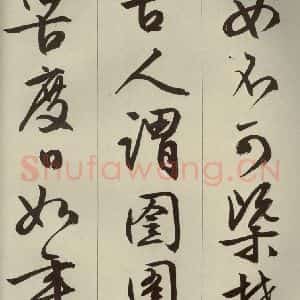 不可槩
古人謂
苦度日如年
Shufawang.CN